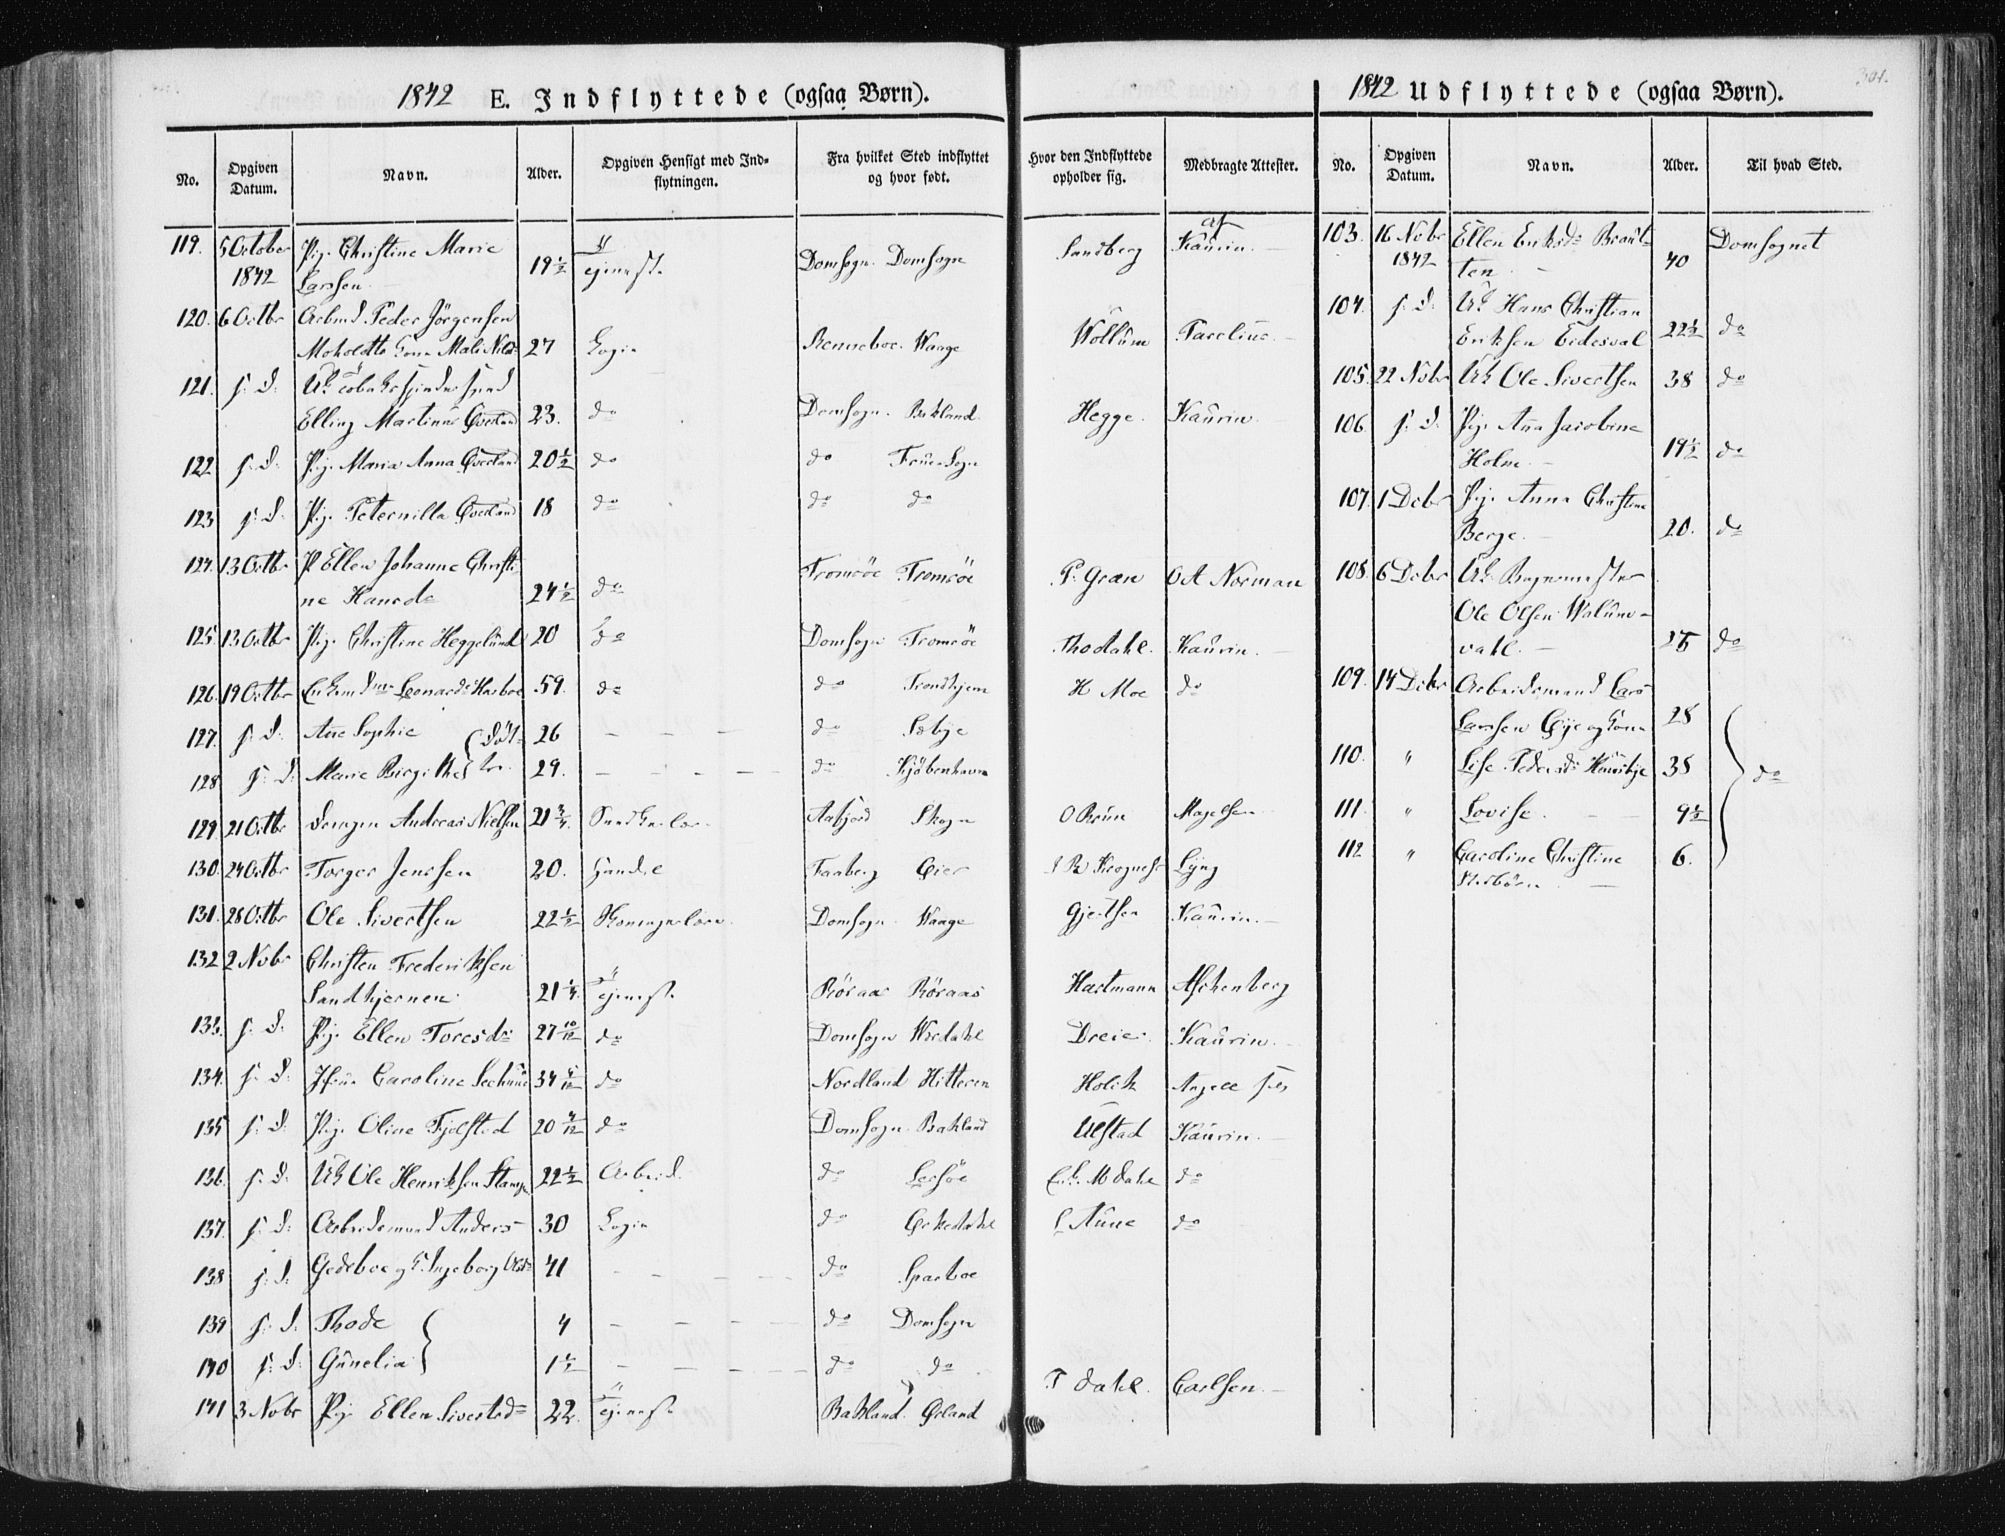 1842 E. Indflyttede (ogsaa Børn).
No. Opgiven Datum. Navn. Alder. Opgiven Hensigt med Indflytningen. Fra hvilket Sted indflyttet og hvor født. Hvor den Indflyttede opholder sig. Medbragte Attester.
119. 5 October Pig. Christine Marie af
1842 Larssen 19½ Tjeneste Domsogn Domsogn Sandberg Kaurin.
120. 6 Octbr Arbmd Peder Jörgensen
Moholdts Kone Mali Nilsd 27 Logie Renneboe Waage Wollum
121. s. d. Uk
Elling Martinus Överland 23. do Domsogn. Bakland Hegge. Kaurin.
122 s. d. Pig. Maria Anna Överland 20½ do do Frue Sogn
123 s. d. Pig. Peternilla Överland 18 do do do
124. 13 Octbr P Ellen Johanne Christi-
ne 24½ do Tromsöe Tromsöe P. Græn O A Norman
125 13 Octbr Pig. Christine Heggelund 20 do Domsogn Tromsöe Thodahl. Kaurin.
126. 19 Octbr Leonards 59. do do Trondhjem H Moe do
127. s. d. Ane Sophie 26 do Sebye
128 s. d. Marie Birgithe 29. do Kjöbenhavn
129 21 Octbr Drengen Andreas Nielsen 21¾ Aafjord Skogn O Bruun
130. 24 Octbr Torger Jenssen 20. Handle Faaberg Öier Lyng
131. 28 Octbr Ole Sivertsen 22½ Domsogn. Waage Gjertsen Kaurin.
132 2 Nobr Christen Frederiksen
Sandkjernen 21¼ Tjeneste Röraas Röraas Hartmann Aschenberg
133. s. d. Pig. Ellen Toresdr 27 10/12 do Domsogn Werdahl Dreier Kaurin.
134. s. d. Caroline 34 do Nordland Hitteren Angell
135 s. d. Pig. Oline Fjelstad 20 4/12 do Domsogn. Bakland Ulstad Kaurin.
136. s. d. Uk Ole Henriksen 22½ Arbeid. do Lexöe do
137. s. d. Arbeidsmand Anders 30 Logie do Örkedahl L Aune do
138 s. d. Gedeboe og K. Ingeborg 41 do Sparboe
139 s. d. Thode 4 do Domsogn
140 s. d. Gunelia 1½ do do
141 3 Nobr Pig. Ellen Sivertsd 22. Tjeneste Bakland. Örland T Dahl. Carlsen.
301.
1842 Udflyttede (ogsaa Børn).
No. Opgiven Datum. Navn. Alder. Til hvad Sted.
103. 16 Nobr Ellen Eriksdr Braut-
1842 ten 40 Domsognet
104. s. d. Uk Hans Christian
Eriksen Eidesval 22½ do
105. 22 Nobr Uk Ole Sivertsen 38 do
106. s. d. Pig. Ana Jacobine
Holm. 19½ do
107. 1 Debr Pig. Anna Christine
Berge. 20. do
108. 6 Debr Uk
Ole Olsen
do
109. 14 Debr Arbeidsmand Lars
Larssen Öye og Kone 28
110. " Lise Pedersdr 38 do
111. " Lovise. 9½
112 " Caroline Christine 6.